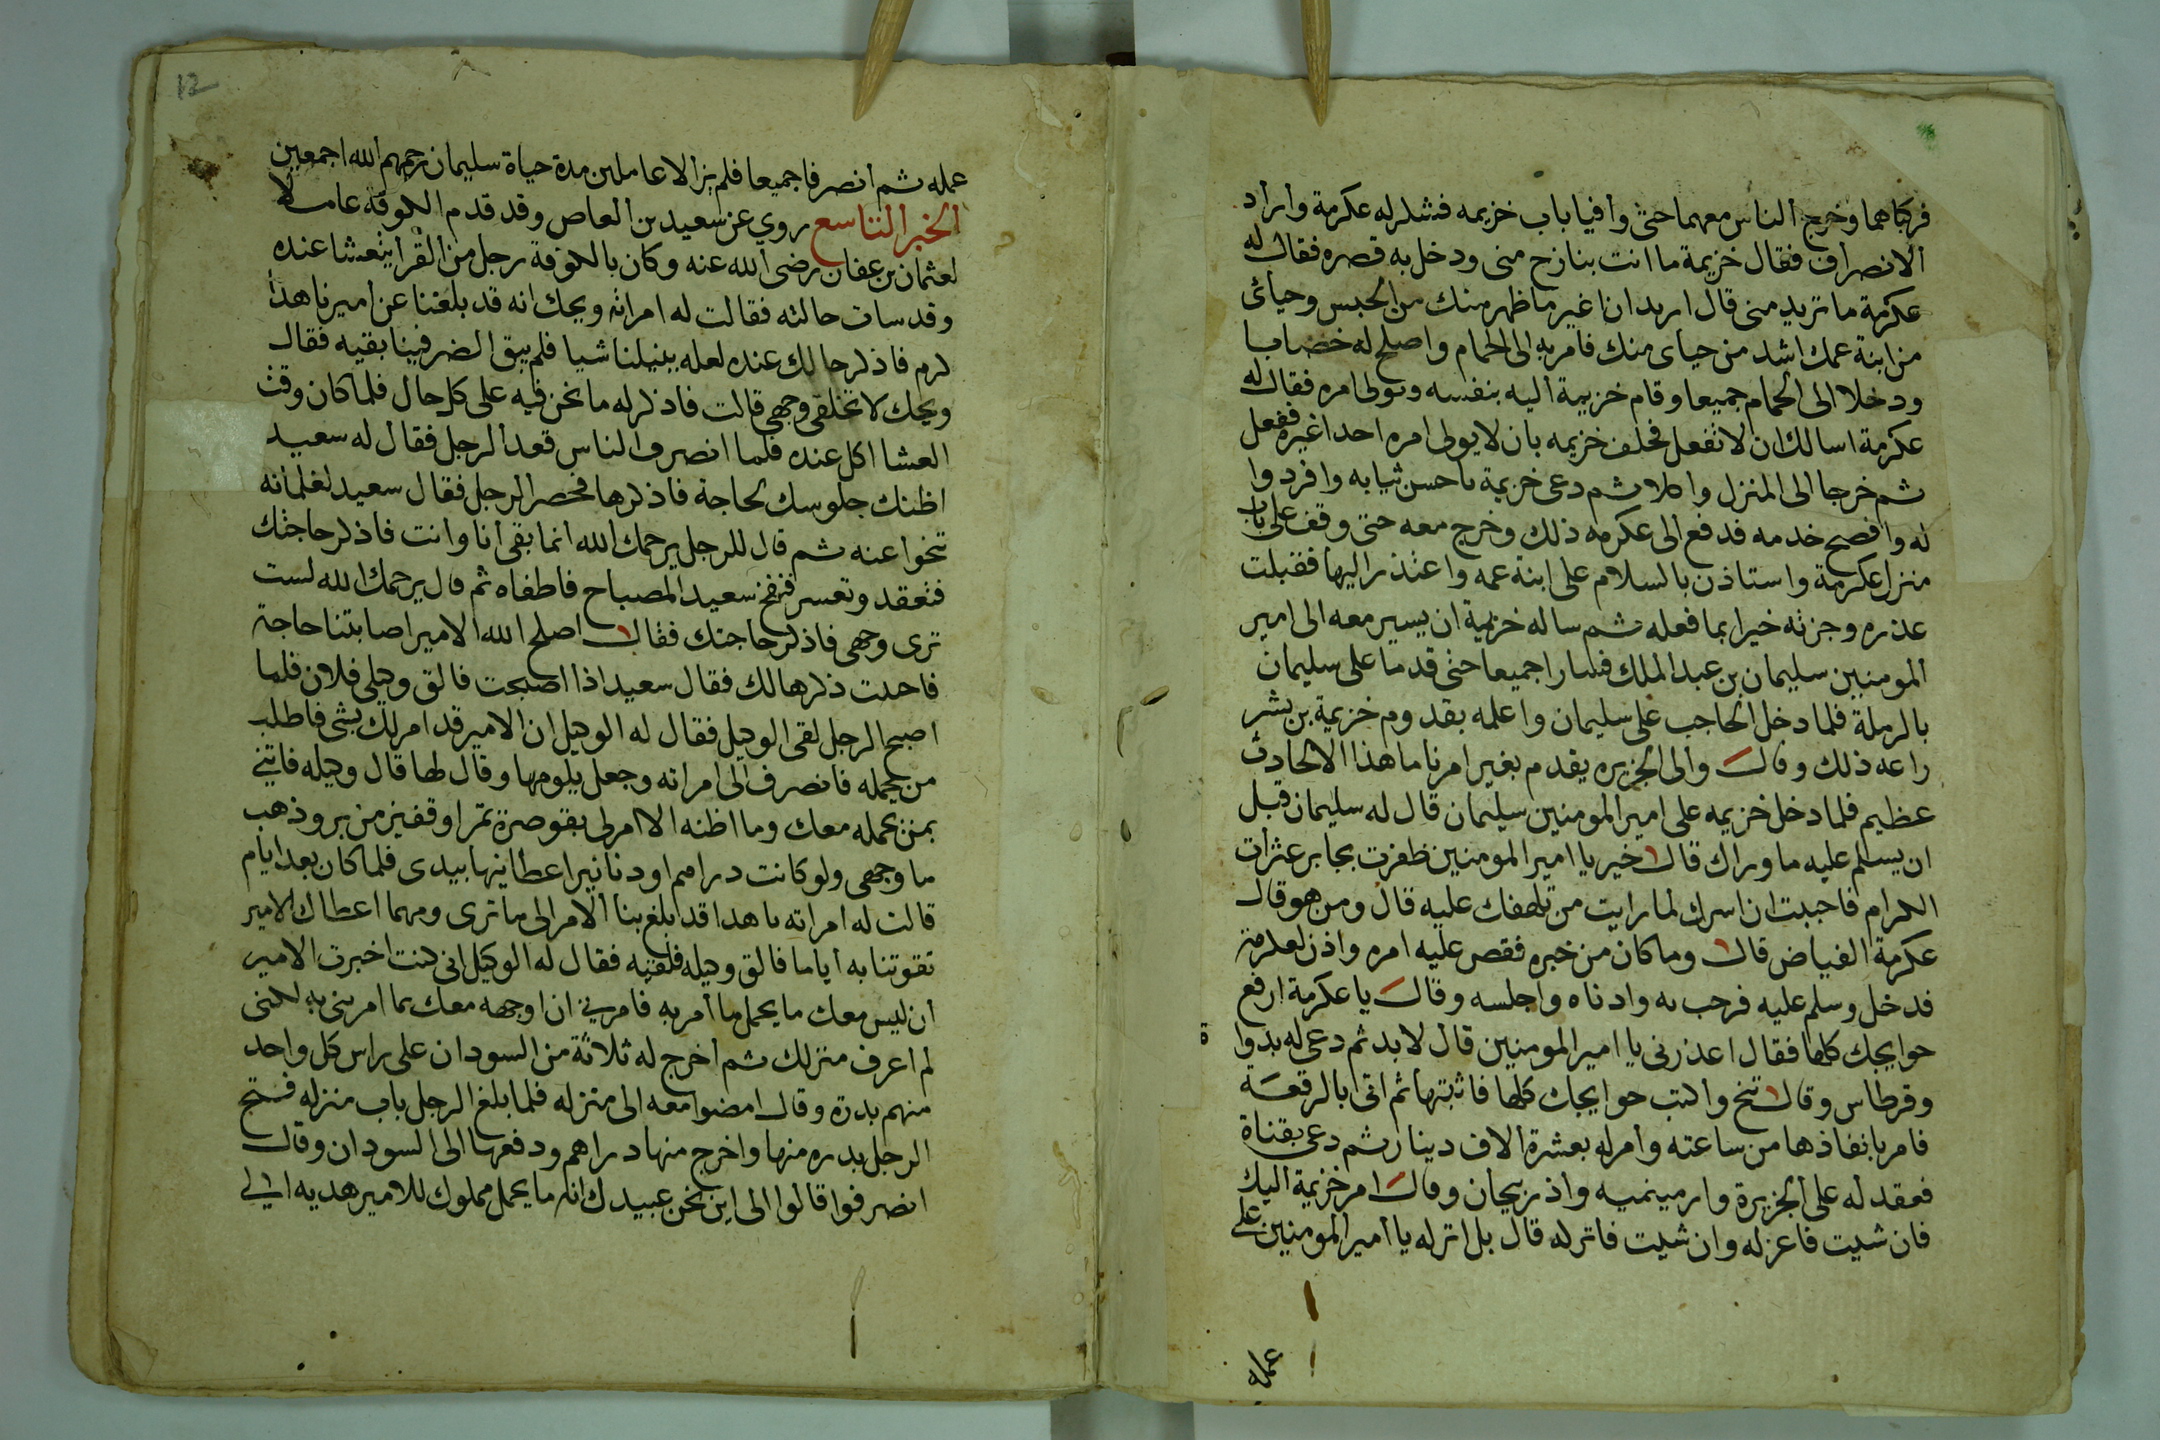 فركباهما وخرج الناس معهما حتى وافيا باب خزيمه فشكر له عكرمة واراد
الانصراف فقال خزيمة ما انت بنازح منى ودخل به قصره فقال له
عكرمة ما تريد منى قال اريد ان اغير ما ظهر منك من الحبس وحيائى
من ابنة عمك اشد من حياى منك فامر به الى الحمام واصلح له خضابا
ودخلا الى الحمام جميعا وقام خزيمة اليه بنفسه وتولى امره فقال له
عكرمة اسالك ان لا تفعل فحلف خزيمه بان لا يولى امره احدا غيره ففعل
ثم خرجا الى المنزل واكلا ثم دعى خزيمة باحسن ثيابه وافرد وا
له وافصح خدمه فدفع الى عكرمه ذلك وخرج معه حتى وقف على باب
منزل عكرمة واستاذن بالسلام على ابنة عمه واعتذر اليها فقبلت
عذره وجزته خيرا بما فعله ثم ساله خزيمة ان يسير معه الى امير
المومنيين سليمان بن عبد الملك فسارا جميعا حتى قدما على سليمان
بالرملة فلما دخل الحاجب على سليمان واعلمه بقدوم خزيمة بن بشر
راعه ذلك وقال والى الجزيره يقدم بغير امرنا ما هذا الا لحادث
عظيم فلما دخل خزيمه على امير المومنيين سليمان قال له سليمان قبل
ان يسلم عليه ما وراك قال خير يا امير المومنيين ظفرت بجابر عثرات
الكرام فاحببت ان اسرك لما رايت من تلهفك عليه قال ومن هو قال
عكرمة الفياض قال وما كان من خبره فقص عليه امره واذن لعكرمة
فدخل وسلم عليه فرحب به وادناه واجلسه وقال يا عكرمة ارفع
حوايجك كلها فقال اعذرنى يا امير المومنيين قال لا بد ثم دعى له بدوا
وقرطاس وقال تنح واكتب حوايجك كلها فاثبتها ثم اتى بالرقعة
فامر بانفاذها من ساعته وامر له بعشرة الاف دينار ثم دعى بقناة
فعقد له على الجزيرة وارمينميه واذربيجان وقال امر خزيمة اليك
فان شيت فاعزله وان شيت فاتركه قال بل اتركه يا امير المومنين على
عمله
12
عمله ثم انصرفا جميعا فلم يزالا عاملين مدة حياة سليمان رحمهم الله اجمعين
الخبر التاسع روي عن سعيد بن العاص وقد قدم الكوفه عاملا
لعثمان بن عفان رضى الله عنه وكان بالكوفة رجل من القرا يتعشا عنده
وقد سات حالته فقالت له امراته ويحك انه قد بلغنا عن اميرنا هذا
كرم فاذكر حالك عنده لعله ينيلنا شيا فلم يبق الضر فينا بقيه فقال
ويحك لا تخلقى وجهى قالت فاذكر له ما نحن فيه على كل حال فلما كان وقت
العشا اكل عنده فلما انصرف الناس قعد الرجل فقال له سعيد
اظنك جلوسك لحاجة فاذكرها فحصر الرجل فقال سعيد لغلمانه
تنحوا عنه ثم قال للرجل يرحمك الله انما بقى انا وانت فاذكر حاجتك
فتعقد وتعسر فنفخ سعيد المصباح فاطفاه ثم قال يرحمك الله لست
ترى وجهى فاذكر حاجتك فقال اصلح الله الامير اصابتنا حاجة
فاحبت ذكرها لك فقال سعيد اذا اصبحت فالق وكيلى فلان فلما
اصبح الرجل لقى الوكيل فقال له الوكيل ان الامير قد امر لك بشى فاطلب
من يحمله فانصرف الى امراته وجعل يلومها وقال لها قال وكيله فاتنى
بمنن يحمله معك وما اظنه الا امر لى بقوصرة تمر او قفيز من بر وذهب
ما وجهى ولو كانت دراهم او دنانيرا اعطاينها بيدى فلما كان بعد ايام
قالت له امراته يا هدا قد بلغ بنا الامر الى ما ترى ومهما اعطاك الامير
تقوتنا به اياما فالق وكيله فلقيه فقال له الوكيل انى كنت اخبرت الامير
ان ليس معك ما يحمل ما امر به فامرني ان اوجهه معك بما امرنى به لكنى
لم اعرف منزلك ثم اخرج له ثلاثة من السودان على راس كل واحد
منهم بدرة وقال امضوا معه الى منزله فلما بلغ الرجل باب منزله فتح
الرجل بدره منها واخرج منها دراهم ودفعها الى السودان وقال
انصرفوا قالوا الى اين نحن عبيدك انه ما يحمل مملوك للامير هديه الى